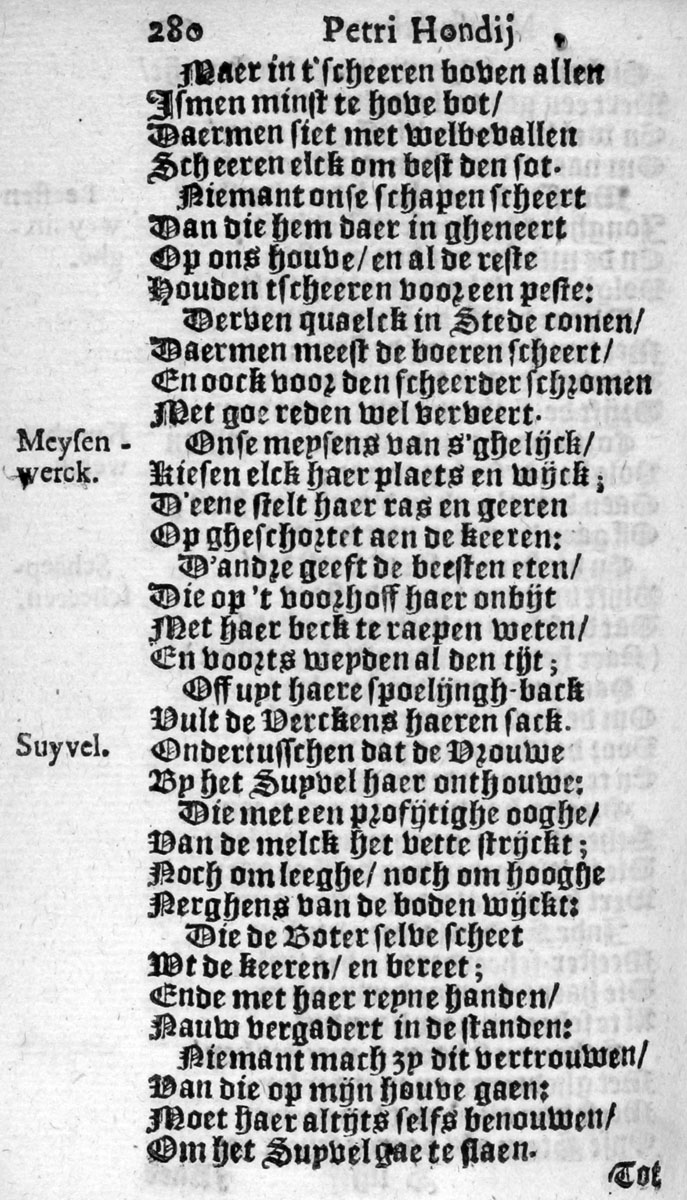 280 Petri Hondij
Maer in t'scheeren boven allen
Ismen minst te hove bot/
Daermen siet met welbevallen
Scheeren elck om best den sot.
Niemant onse schapen scheert
Dan die hem daer in gheneert
Op ons houve/ en al de reste
Houden tscheeren voor een peste:
Derven quaelck in Stede comen/
Daermen meest de boeren scheert/
En oock voor den scheerder schromen
Met goe reden wel verveert.
Meysen-
werck.
Onse meysens van s'ghelijck/
Kiesen elck haer plaets en wijck;
D'eene stelt haer ras en geeren
Op gheschortet aen de keeren:
D'andre geeft de beesten eten/
Die op 't voorhoff haer onbijt
Met haer beck te raepen weten/
En voorts weyden al den tijt;
Off uyt haere spoelijngh-back
Vult de Verckens haeren sack.
Suyvel.
Ondertusschen dat de Vrouwe
By het Suyvel haer onthouwe:
Die met een profijtighe ooghe/
Van de melck het vette strijckt;
Noch om leeghe/ noch om hooghe
Nerghens van de boden wijckt:
Die de Boter selve scheet
Wt de keeren/ en bereet;
Ende met haer reyne handen/
Nauw vergadert in de standen:
Niemant mach zy dit vertrouwen/
Van die op mijn houve gaen:
Moet haer altijts selfs benouwen/
Om het Suyvel gae te slaen.
Tot